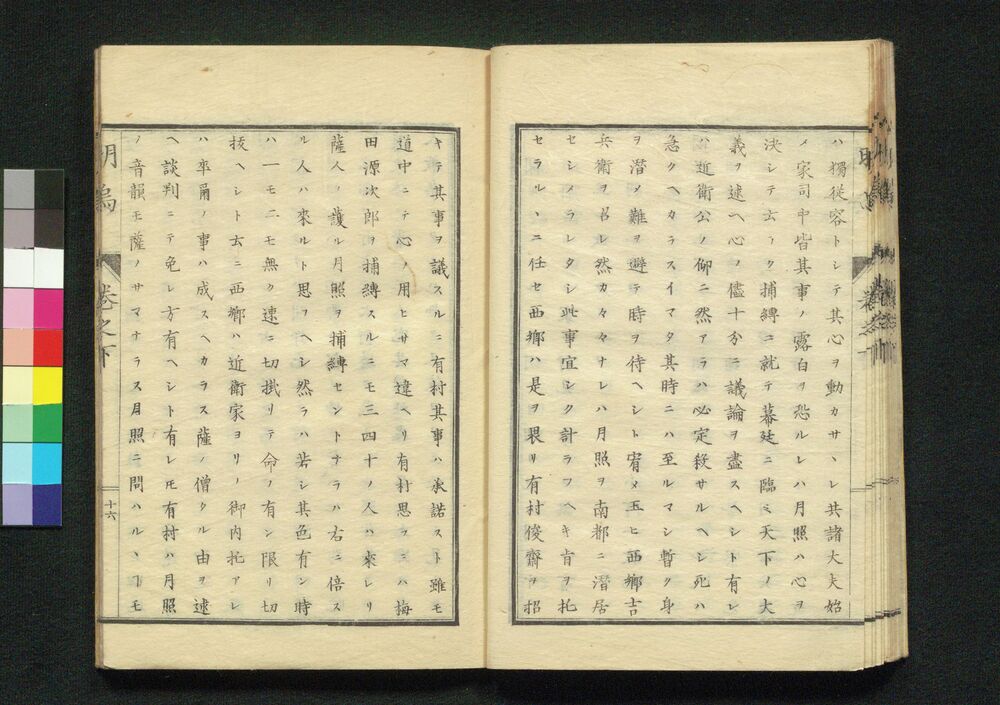 ハ獨從容トシテ其心ヲ動カサヽレ共諸大夫始
メ家司中皆其事ノ露白ヲ恐ルレハ月照ハ心ヲ
決シテ云ラク捕縛ニ就テ幕廷ニ臨ミ天下ノ大
義ヲ述ヘ心ノ儘十分ニ議論ヲ盡スヘシト有レ
ハ近衛公ノ仰ニ然アラハ必定殺サルヘシ死ハ
急クヘカラスイマタ其時ニハ至ルマシ暫ク身
ヲ潜メ難ヲ避テ時ヲ待ヘシト宥メ玉ヒ西郷吉
兵衛ヲ召レ然カ々々ナレハ月照ヲ南都ニ潜居
セシメラレタシ此事宜シク計ラフヘキ旨ヲ托
セラルヽニ任セ西郷ハ是ヲ畏リ有村俊齋ヲ招
キテ其事ヲ議スルニ有村其事ハ承諾スト雖モ
道中ニテ心ノ用ヒサマ違ヘリ有村思フニハ梅
田源次郎ヲ捕縛スルニモ三四十ノ人ハ來レリ
薩人ノ護ル月照ヲ捕縛セントナラハ右ニ倍ス
ル人ハ來ルト思フヘシ然ラハ若シ其色有ン時
ハ一モ二モ無ク速ニ切掛リテ命ノ有ン限リ切
抜ヘシト云ニ西郷ハ近衛家ヨリノ御内托アレ
ハ卒爾ノ事ハ成スヘカラス薩ノ僧クル由ヲ述
ヘ談判ニテ免レ方有ヘシト有レ𪜈有村ハ月照
ノ音韻モ薩ノサマナラス月照ニ問ハルヽヿモ
卷之下
十六